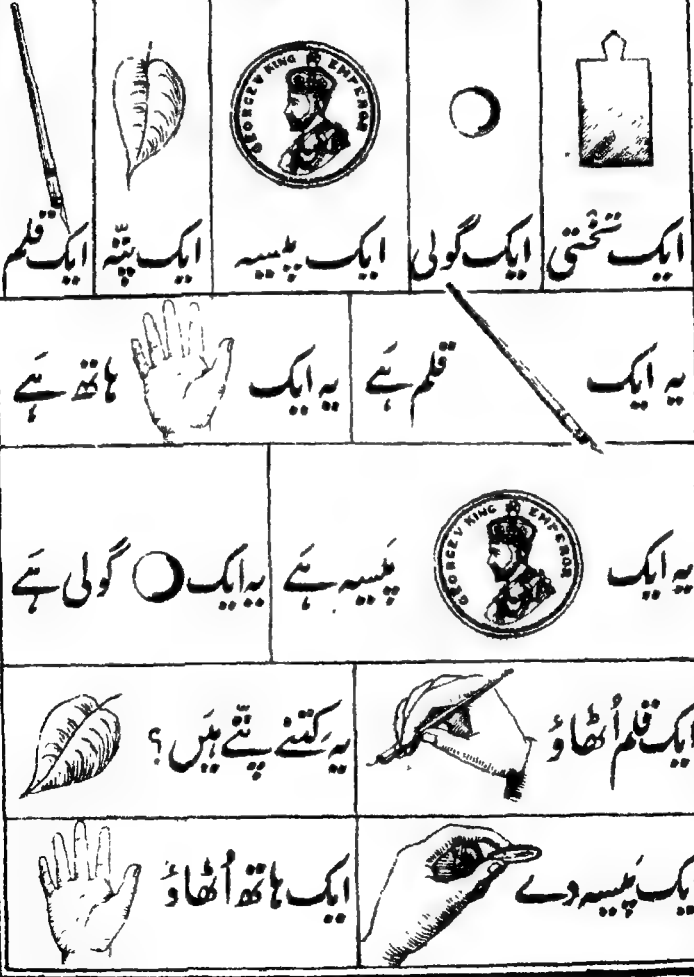 ایک تختی
ایک گولی
GEORGE V KING EMPEROR
ایک پیسہ
ایک پتّہ
ایک قلم
یہ ایک قلم ہَے
یہ ایک ہاتھ ہَے
یہ ایک
GEORGE V KING EMPEROR
پَیسہ ہَے
یہ ایک گولی ہَے
ایک قلم اُٹھاؤ
یہ کِتنے پتّے ہَیں؟
یک پَیسہ دے
ایک ہاتھ اُٹھاؤ